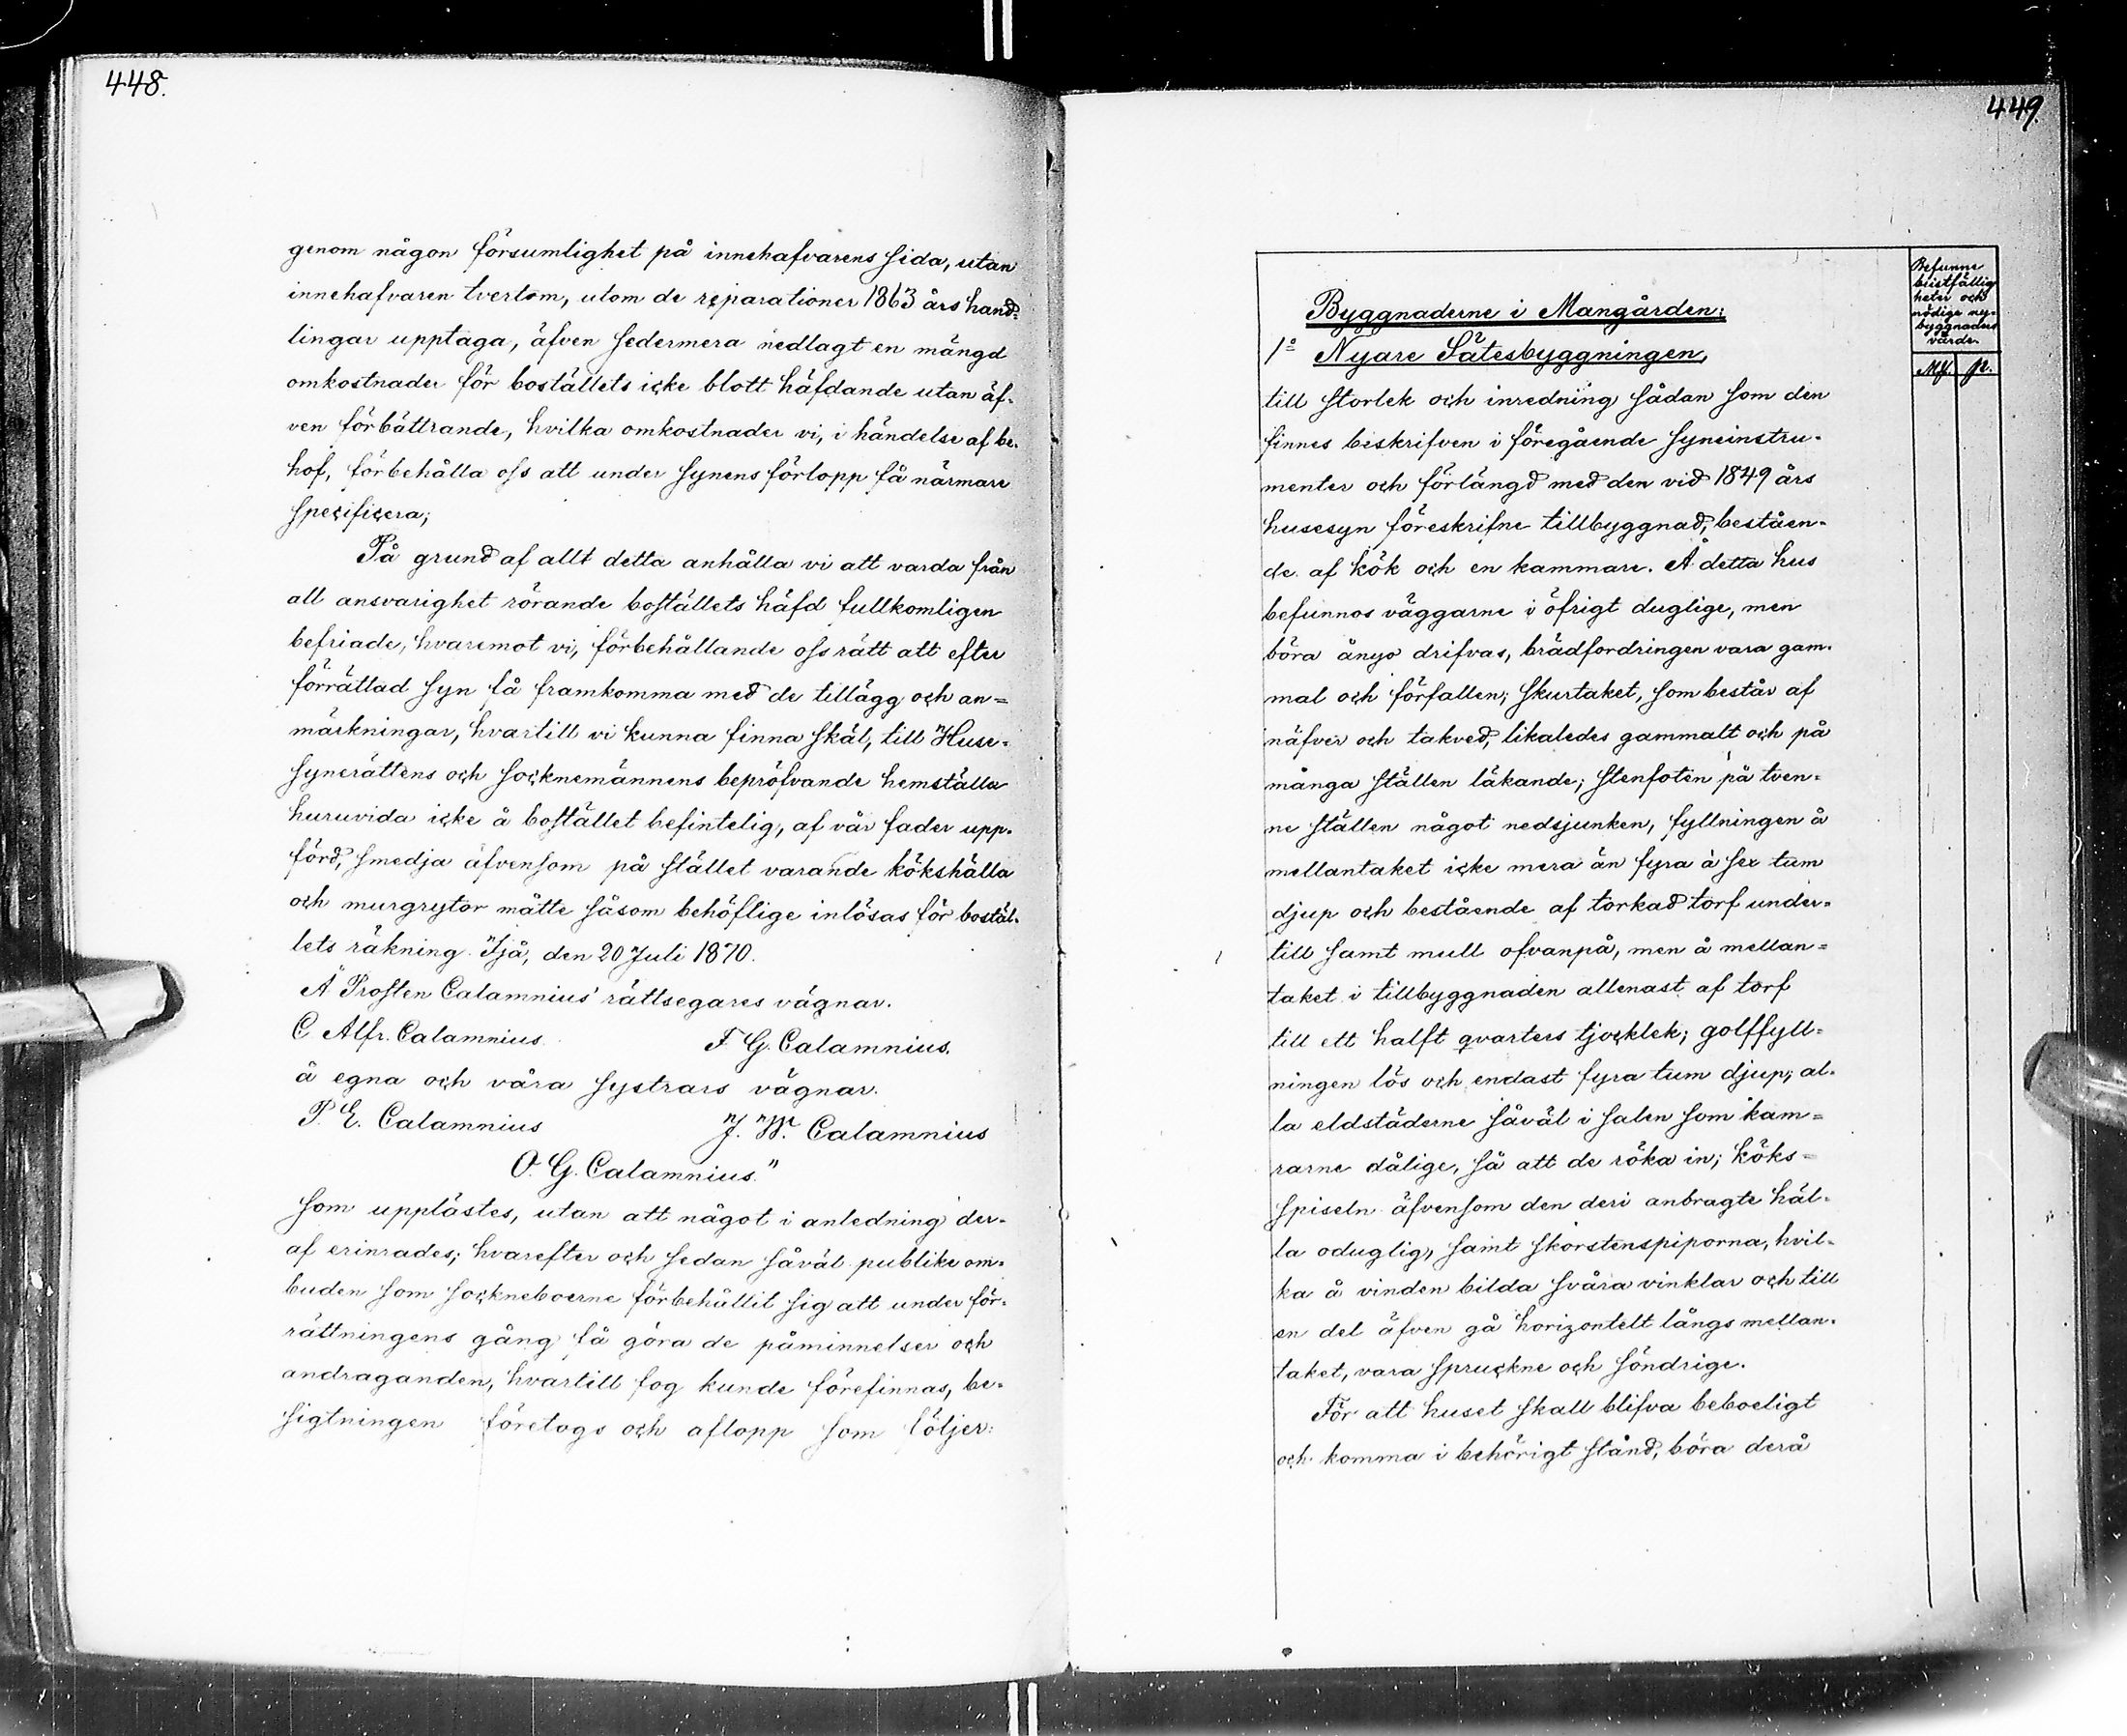 448.
genom någon försumlighet på innehafvarens sida, utan
innehafvaren tvertom, utom de reparationer 1863 års hand-
lingar upptaga, äfven sedermera nedlagt en mängd
omkostnader för boställets icke blott häfdande utan äf-
ven förbättrande, hvilka omkostnader vi, i händelse af be-
hof, förbehålla oss att under synens förlopp få närmare
specificera;
På grund af allt detta anhålla vi att varda från
all ansvarighet rörande boställets häfd fullkomligen
befriade, hvaremot vi, förbehållande oss rätt att efter
förrättad syn få framkomma med de tillägg och an-
märkningar, hvartill vi kunna finna skäl, till Huse-
synerättens och socknemännens bepröfvande hemställa
huruvida icke å bostället befintelig, af vår fader upp-
förd, smedja äfvensom på stället varande kökshälla
och murgrytor måtte såsom behöflige inlösas för bostäl-
lets räkning. Ijå, den 20 Juli 1870.
Å Prosten Calamnius' rättsegares vägnar.
C Alfr. Calamnius. F G. Calamnius.
å egna och våra systrars vägnar.
P. E. Calamnius J. W. Calamnius
O. G. Calamnius."
som upplästes, utan att något i anledning der-
af erinrades; hvarefter och sedan såväl publike om-
buden som sockneboerne förbehållit sig att under för-
rättningens gång få göra de påminnelser och
andraganden, hvartill fog kunde förefinnas, be-
sigtningen företogs och aflopp som följer:
449.
Befunne
bristfällig
heter och
nödige ny-
byggnaders
värde.
Mf. p.
Byggnaderne i Mangården:
1o Nyare Sätesbyggningen,
till storlek och inredning sådan som den
finnes beskrifven i föregående syneinstru-
menter och förlängd med den vid 1849 års
husesyn föreskrifne tillbyggnad, beståen-
de af kök och en kammare. Å detta hus
befunnos väggarne i öfrigt duglige, men
böra ånyo drifvas, brädfordringen vara gam-
mal och förfallen; skurtaket, som består af
näfver och takved, likaledes gammalt och på
många ställen läkande; stenfoten på tven-
ne ställen något nedsjunken, fyllningen å
mellantaket icke mera än fyra à sex tum
djup och bestående af torkad torf under-
till samt mull ofvanpå, men å mellan-
taket i tillbyggnaden allenast af torf
till ett halft qvarters tjocklek; golffyll-
ningen lös och endast fyra tum djup; al-
la eldstäderne såväl i salen som kam-
rarne dålige, så att de röka in; köks-
spiseln äfvensom den deri anbragte häl-
la oduglig, samt skorstenspiporna, hvil-
ka å vinden bilda svåra vinklar och till
en del äfven gå horizontelt långs mellan-
taket, vara spruckne och söndrige.
För att huset skall blifva beboeligt
och komma i behörigt stånd, böra derå